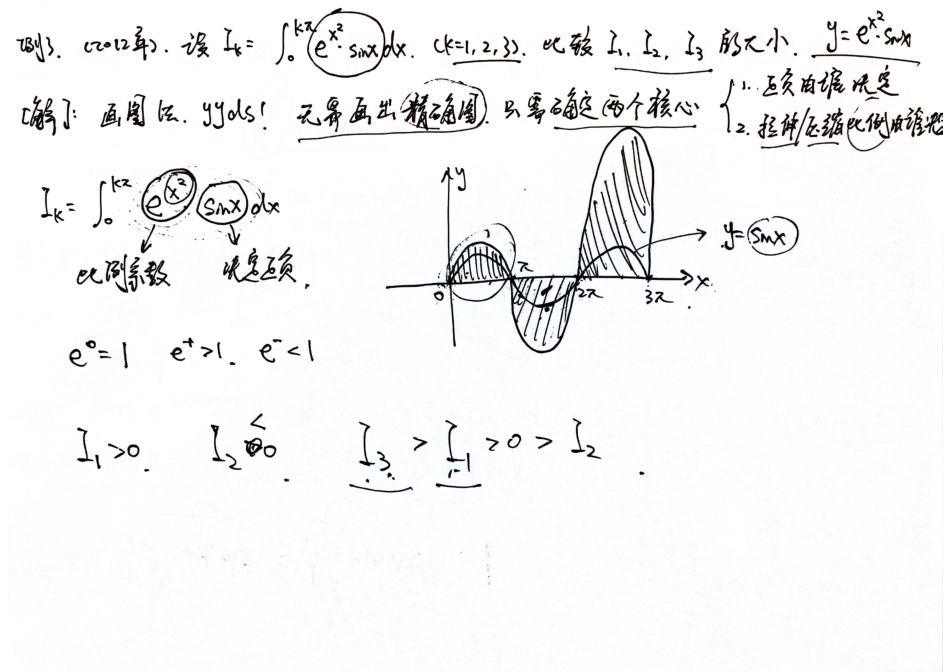 例3. (2012年). 设 I_k = ∫_0^{kπ} e^{x²}·sinx dx. (k=1,2,3). 比较 I_1, I_2, I_3 的大小. y=e^{x²}·sinx
[解]: 画图法. yyds! 无需画出(精确图). 只需确定两个核心 { 1. 正负由谁决定
2. 拉伸/压缩比例由谁
I_k = ∫_0^{kπ} e^{x²} sinx dx
比例系数 决定正负.
y
1
y=sinx
0 π 2π 3π x
e^0=1 e^+>1. e^-<1
I_1>0. I_2<0. I_3 > I_1 >0 > I_2.